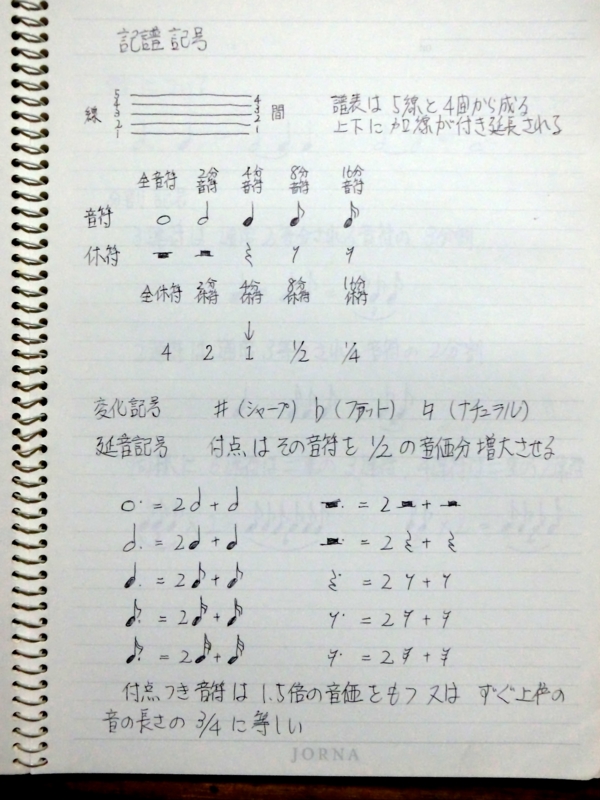 記譜記号
線 5 4 3 2 1 4 3 2 1 間
譜表は5線と4間から成る
上下に加線が付き延長される
全音符 2分音符 4分音符 8分音符 16分音符
音符
休符
全休符 2分休符 4分休符 8分休符 16分休符
↓
4 2 1 1/2 1/4
変化記号 ♯(シャープ) ♭(フラット) ♮(ナチュラル)
延音記号 付点はその音符を1/2の音価分増大させる
𝅝. = 2𝅗𝅥 + 𝅗𝅥 𝄻. = 2𝄼 + 𝄼
𝅗𝅥. = 2𝅘𝅥 + 𝅘𝅥 𝄼. = 2𝄽 + 𝄽
𝅘𝅥. = 2𝅘𝅥𝅮 + 𝅘𝅥𝅮 𝄽. = 2𝄾 + 𝄾
𝅘𝅥𝅮. = 2𝅘𝅥𝅯 + 𝅘𝅥𝅯 𝄾. = 2𝄿 + 𝄿
𝅘𝅥𝅯. = 2𝅘𝅥𝅰 + 𝅘𝅥𝅰 𝄿. = 2𝅀 + 𝅀
付点つき音符は1.5倍の音価をもつ 又は すぐ上の
音の長さの3/4に等しい
JORNA